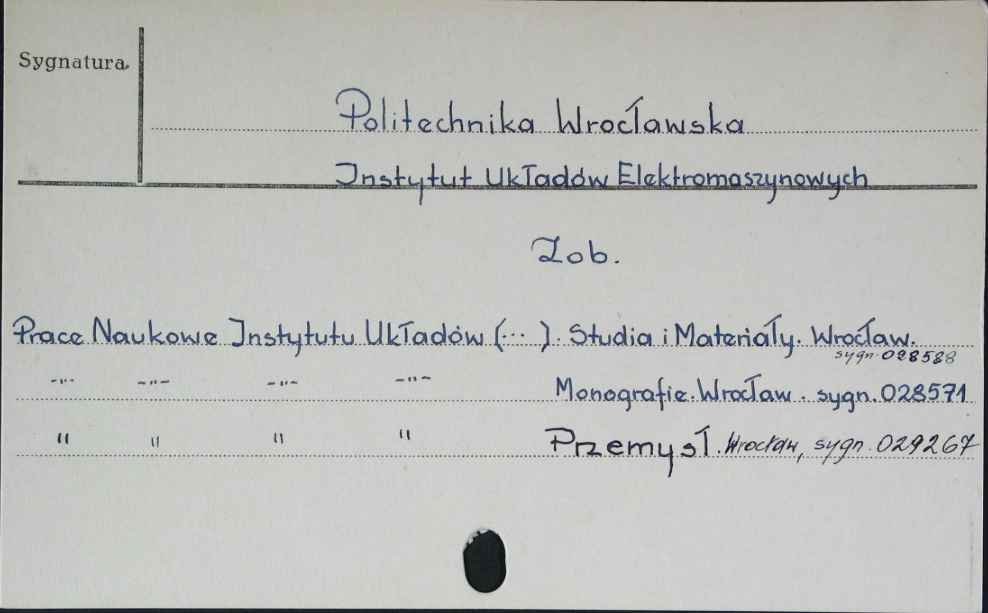 Sygnatura
Politechnika Wrocławska
Instytut Układów Elektromaszynowych
Zob.
Prace Naukowe Instytutu Układów (...). Studia i Materiały. Wrocław.
sygn. 028588
-"- -"- -"- -"- Monografie. Wrocław. sygn. 028571
" " " " Przemysł. Wrocław, sygn. 029267